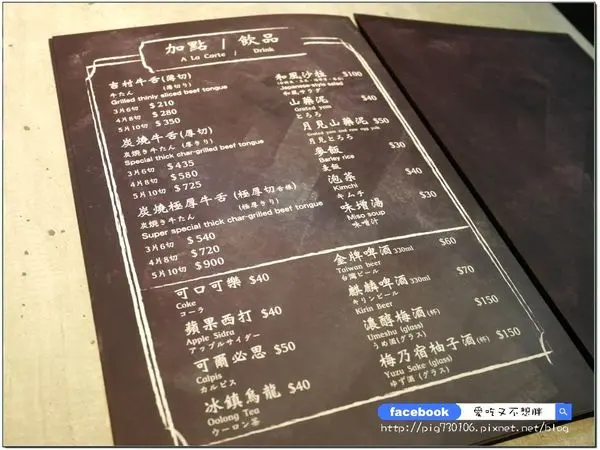 加點 | 飲品
A La Carte / Drink
吉村牛舌(薄切)
牛たん (薄切り)
Grilled thinly sliced beef tongue
3片6切 $210
4片8切 $280
5片10切 $350
炭燒牛舌(厚切)
炭焼き牛たん (厚きり)
Special thick char-grilled beef tongue
3片6切 $435
4片8切 $580
5片10切 $725
炭燒極厚牛舌 (極厚切舌根)
炭焼き牛たん (極厚きり)
Super special thick char-grilled beef tongue
3片6切 $540
4片8切 $720
5片10切 $900
和風沙拉 $100
Japanese-style salad
和風サラダ
山藥泥 $40
Grated yam
とろろ
月見山藥泥 $50
Grated yam and raw egg yolk
月見とろろ
麥飯 $30
Barley rice
麦飯
泡菜 $40
Kimchi
キムチ
味增湯 $30
Miso soup
味噌汁
可口可樂 $40
Coke
コーラ
蘋果西打 $40
Apple Sidra
アップルサイダー
可爾必思 $50
Calpis
カルピス
冰鎮烏龍 $40
Oolong Tea
ウーロン茶
金牌啤酒 330ml $60
Taiwan beer
台湾ビール
麒麟啤酒 330ml $70
Kirin Beer
キリンビール
濃醇梅酒 (杯) $150
Umeshu (glass)
うめ酒(グラス)
梅乃宿柚子酒 (杯) $150
Yuzu Sake (glass)
ゆず酒(グラス)
facebook 愛吃又不想胖
http://pig730106.pixnet.net/blog